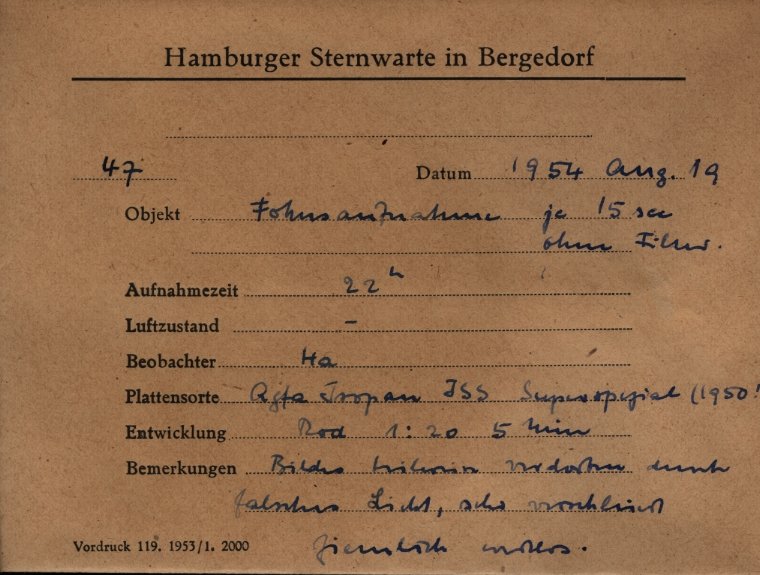 Hamburger Sternwarte in Bergedorf
47 Datum 1954 Aug. 19
Objekt Fokusaufnahme je 15 sec
ohne Filter.
Aufnahmezeit 22h
Luftzustand -
Beobachter Ha
Plattensorte Agfa Isopan ISS Superspezial (1950!
Entwicklung Rod 1:20 5 min
Bemerkungen Bilder teilweise verdorben durch
falsches Licht, sehr verschleiert
ziemlich wertlos.
Vordruck 119. 1953/1. 2000